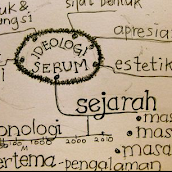 sifat bentuk
uk &
ngsi
IDEOLOGI
SERUM
apresia
estetik
i
sejarah
onologi
1000
2000 2010
•mas
•mas
•masa
ertema-pengalaman